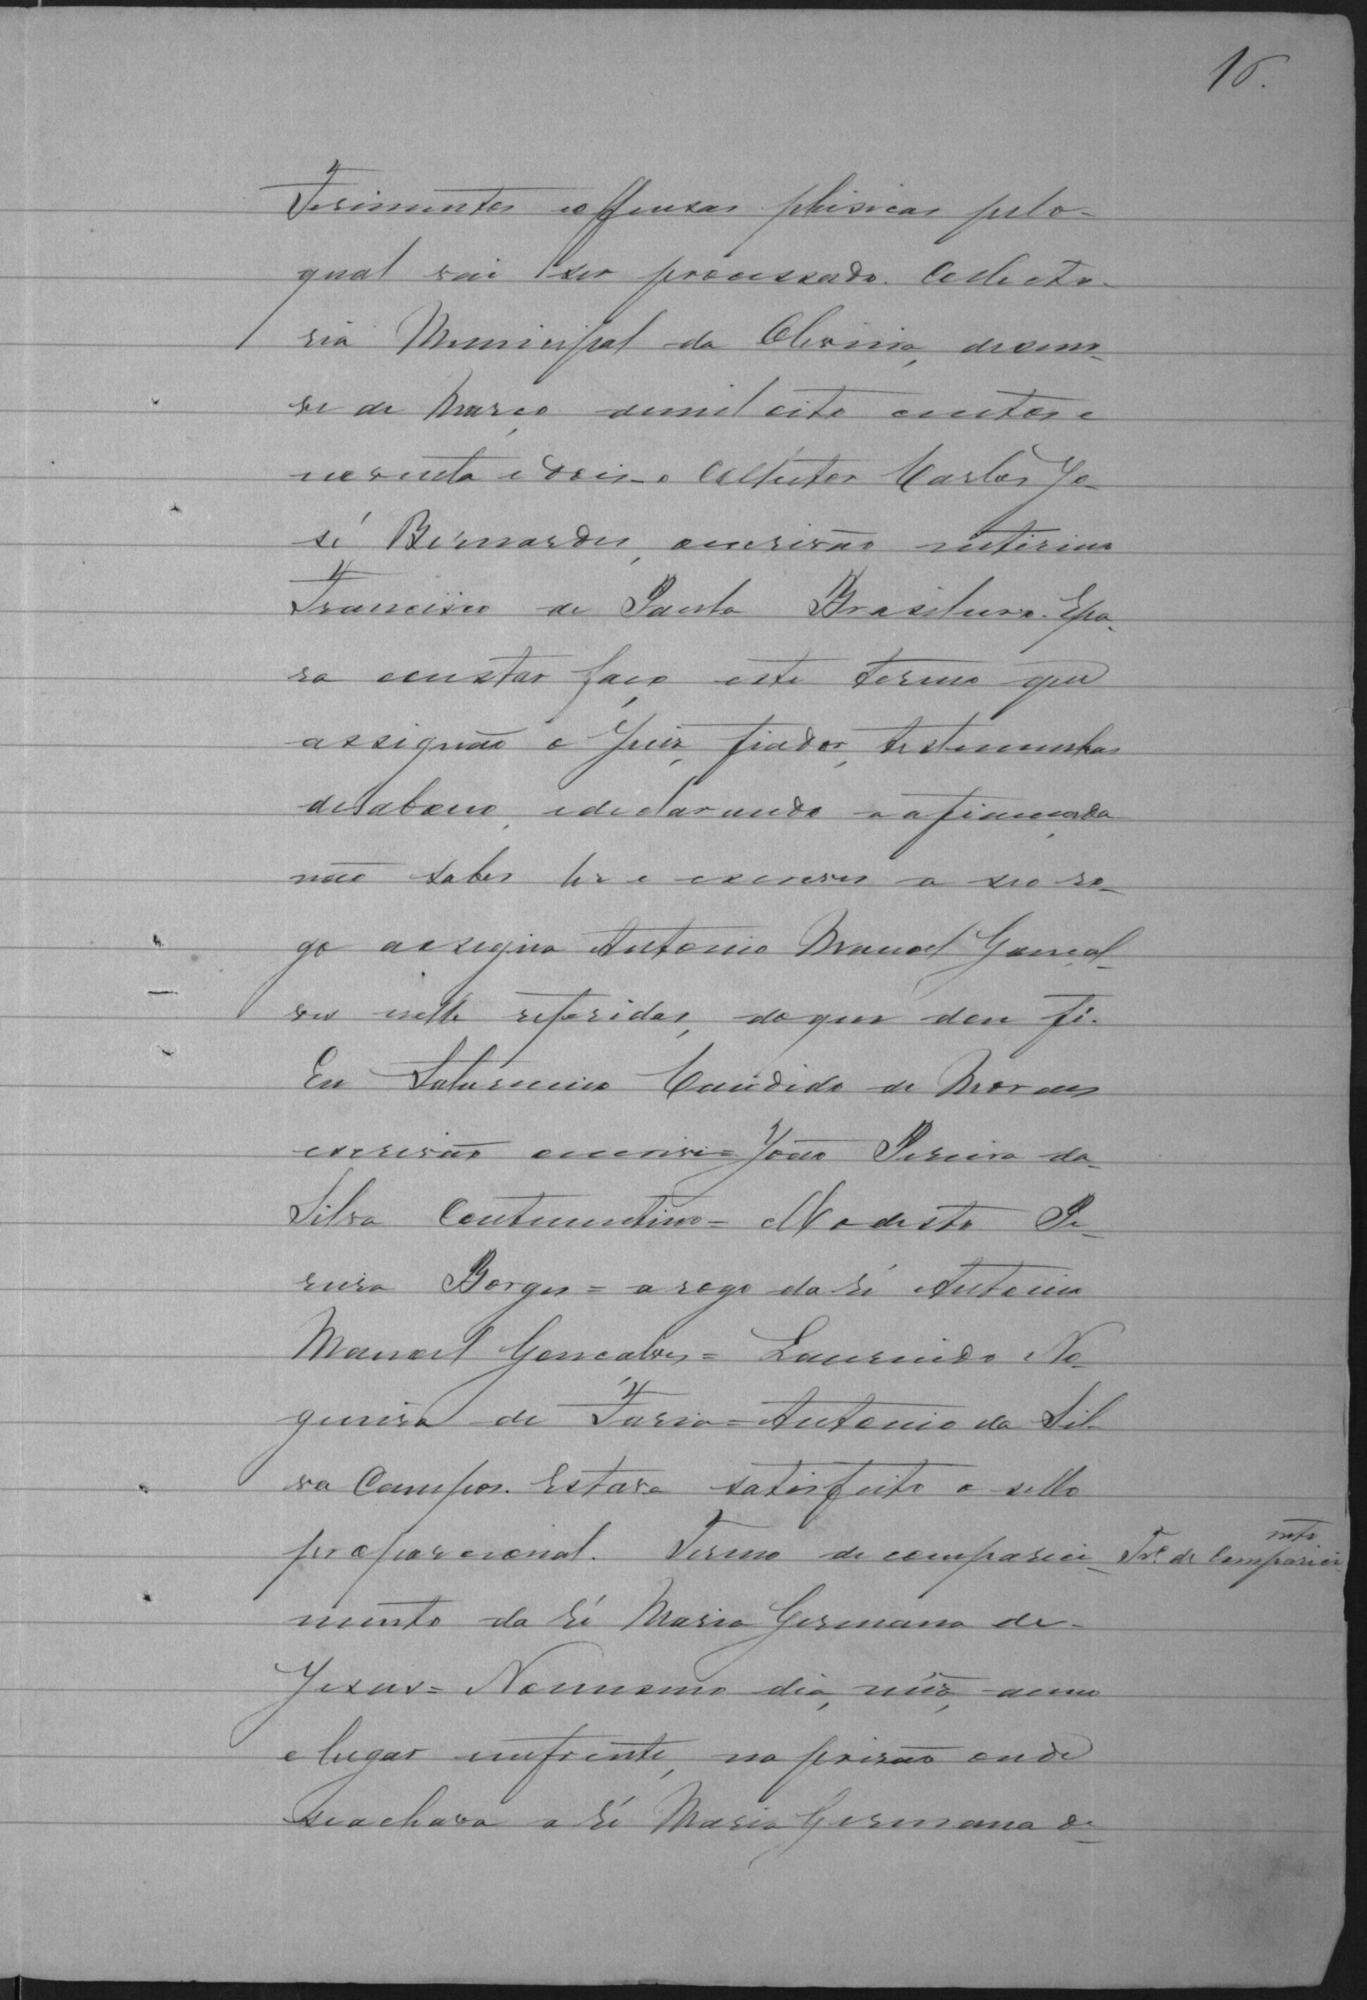 16.
Ferimentos e offensas phisicas pelo-
qual vai ser processado. Collecto-
ria Municipal da Oliveira, dezeno-
ve de Março de mil oito centos e
noventa e dois. o Collector Carlos Jo-
sé Bernardes, escrivão interino
Francisco de Paula Brasileiro. E pa-
ra constar faço este termo que
assignão o Juiz, fiador, testemunhas
de abono, e declarando a afiançada
não saber ler e escrever a seo ro-
go assigna Antonio Manoel Gonçal-
ves nelle referidos, do que dou fé.
Eu Saturnino Candido de Moraes
escrivão escrevi = João Pereira da
Silva Contumentino = Modesto Pe-
reira Borges = a rogo da ré Antonio
Manoel Goncalves = Laurindo No-
gueira de Faria = Antonio da Sil-
va Campos. Estava satisfeito o sello
proporcional. Termo de compareci-
Tr.º de Compareci
mto
mento da ré Maria Germana de-
Jesus = No mesmo dia, mês, anno
e lugar emfrente, na prisão onde
se achava a ré Maria Germana de